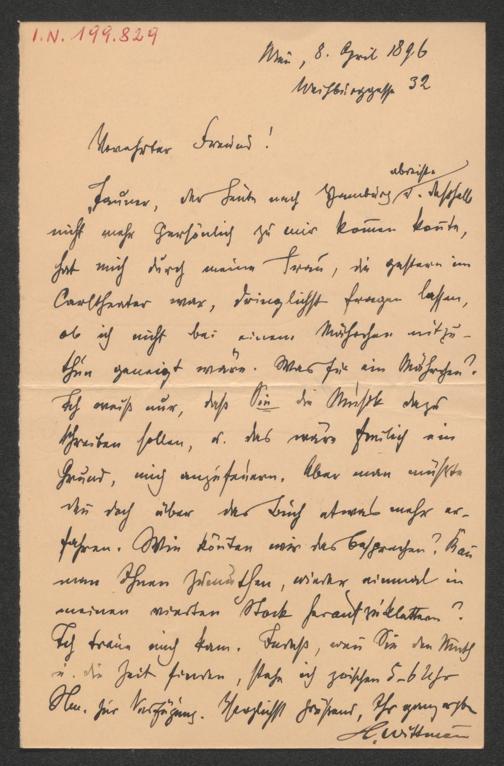 I.N. 199.829
Wien, 8. April 1896
Weihburggasse 32
Verehrter Freund!
abreiste
Jauner, der heute nach Hamburg u. deßhalb
nicht mehr persönlich zu mir kom̅en kon̅te,
hat mich durch meine Frau, die gestern im
Carltheater war, dringlichst fragen lassen,
ob ich nicht bei einem Mährchen mitzu-
thun geneigt wäre. Was für ein Mährchen?
Ich weiß nur, daß Sie die Musik dazu
schreiben sollen, u. das wäre freilich ein
Grund, mich anzufeuern. Aber man müßte
den doch über das Buch etwas mehr er-
fahren. Wie kön̅ten wir das besprechen? Kan̅
man Ihnen zumuthen, wieder einmal in
meinen vierten Stock heraufzuklettern?
Ich traue mich kaum. Indeß, wen̅ Sie den Muth
u. die Zeit finden, stehe ich zwischen 5-6 Uhr
Nm. zur Verfügung. Herzlichst grüßend, Ihr ganz ergb
H. Wittmann